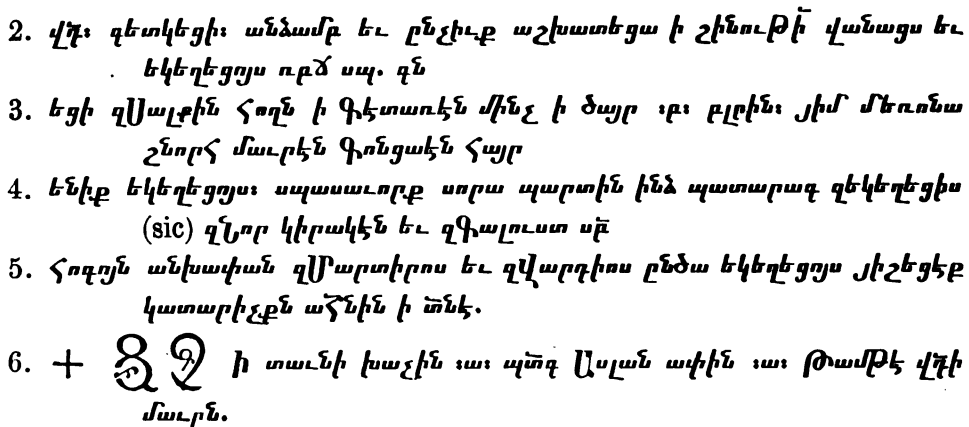 2. վր̅։ գետկեցի։ անձամբ եւ ընչիւք աշխատեցա ի շինութի̅ վանացս եւ
եկեղեցոյս ոբժ սպ. զն
3. եցի զՍալքին Հողն ի Գէտառէն մինչ ի ծայր ։բ։ բլրին։ յիմ մեռոնա
շնորհ մաւրէն Գոնցաէն Հայր
4. ենիք եկեղեցոյս։ սպասաւորք սորա պարտին ինձ պատարագ զեկեղեցիս
(sic) զՆոր կիրակէն եւ զԳալուստ սբ̅
5. Հոգոյն անխափան զՄարտիրոս եւ զՎարդիոս ընծա եկեղեցոյս յիշեցէք
կատարիչքն աշ̅նին ի տ̅նէ.
6. + ի տաւնի խաչին ։ա։ պտ̅գ Ասլան ափին ։ա։ Թամթէ վր̅ի
մաւրն.